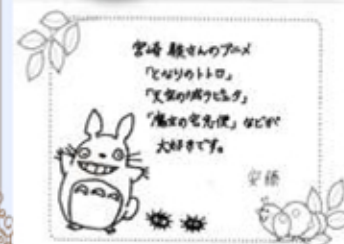 宮崎 駿さんのアニメ
「となりのトトロ」
「天空の城ラピュタ」
「魔女の宅急便」などが
大好きです。
安藤